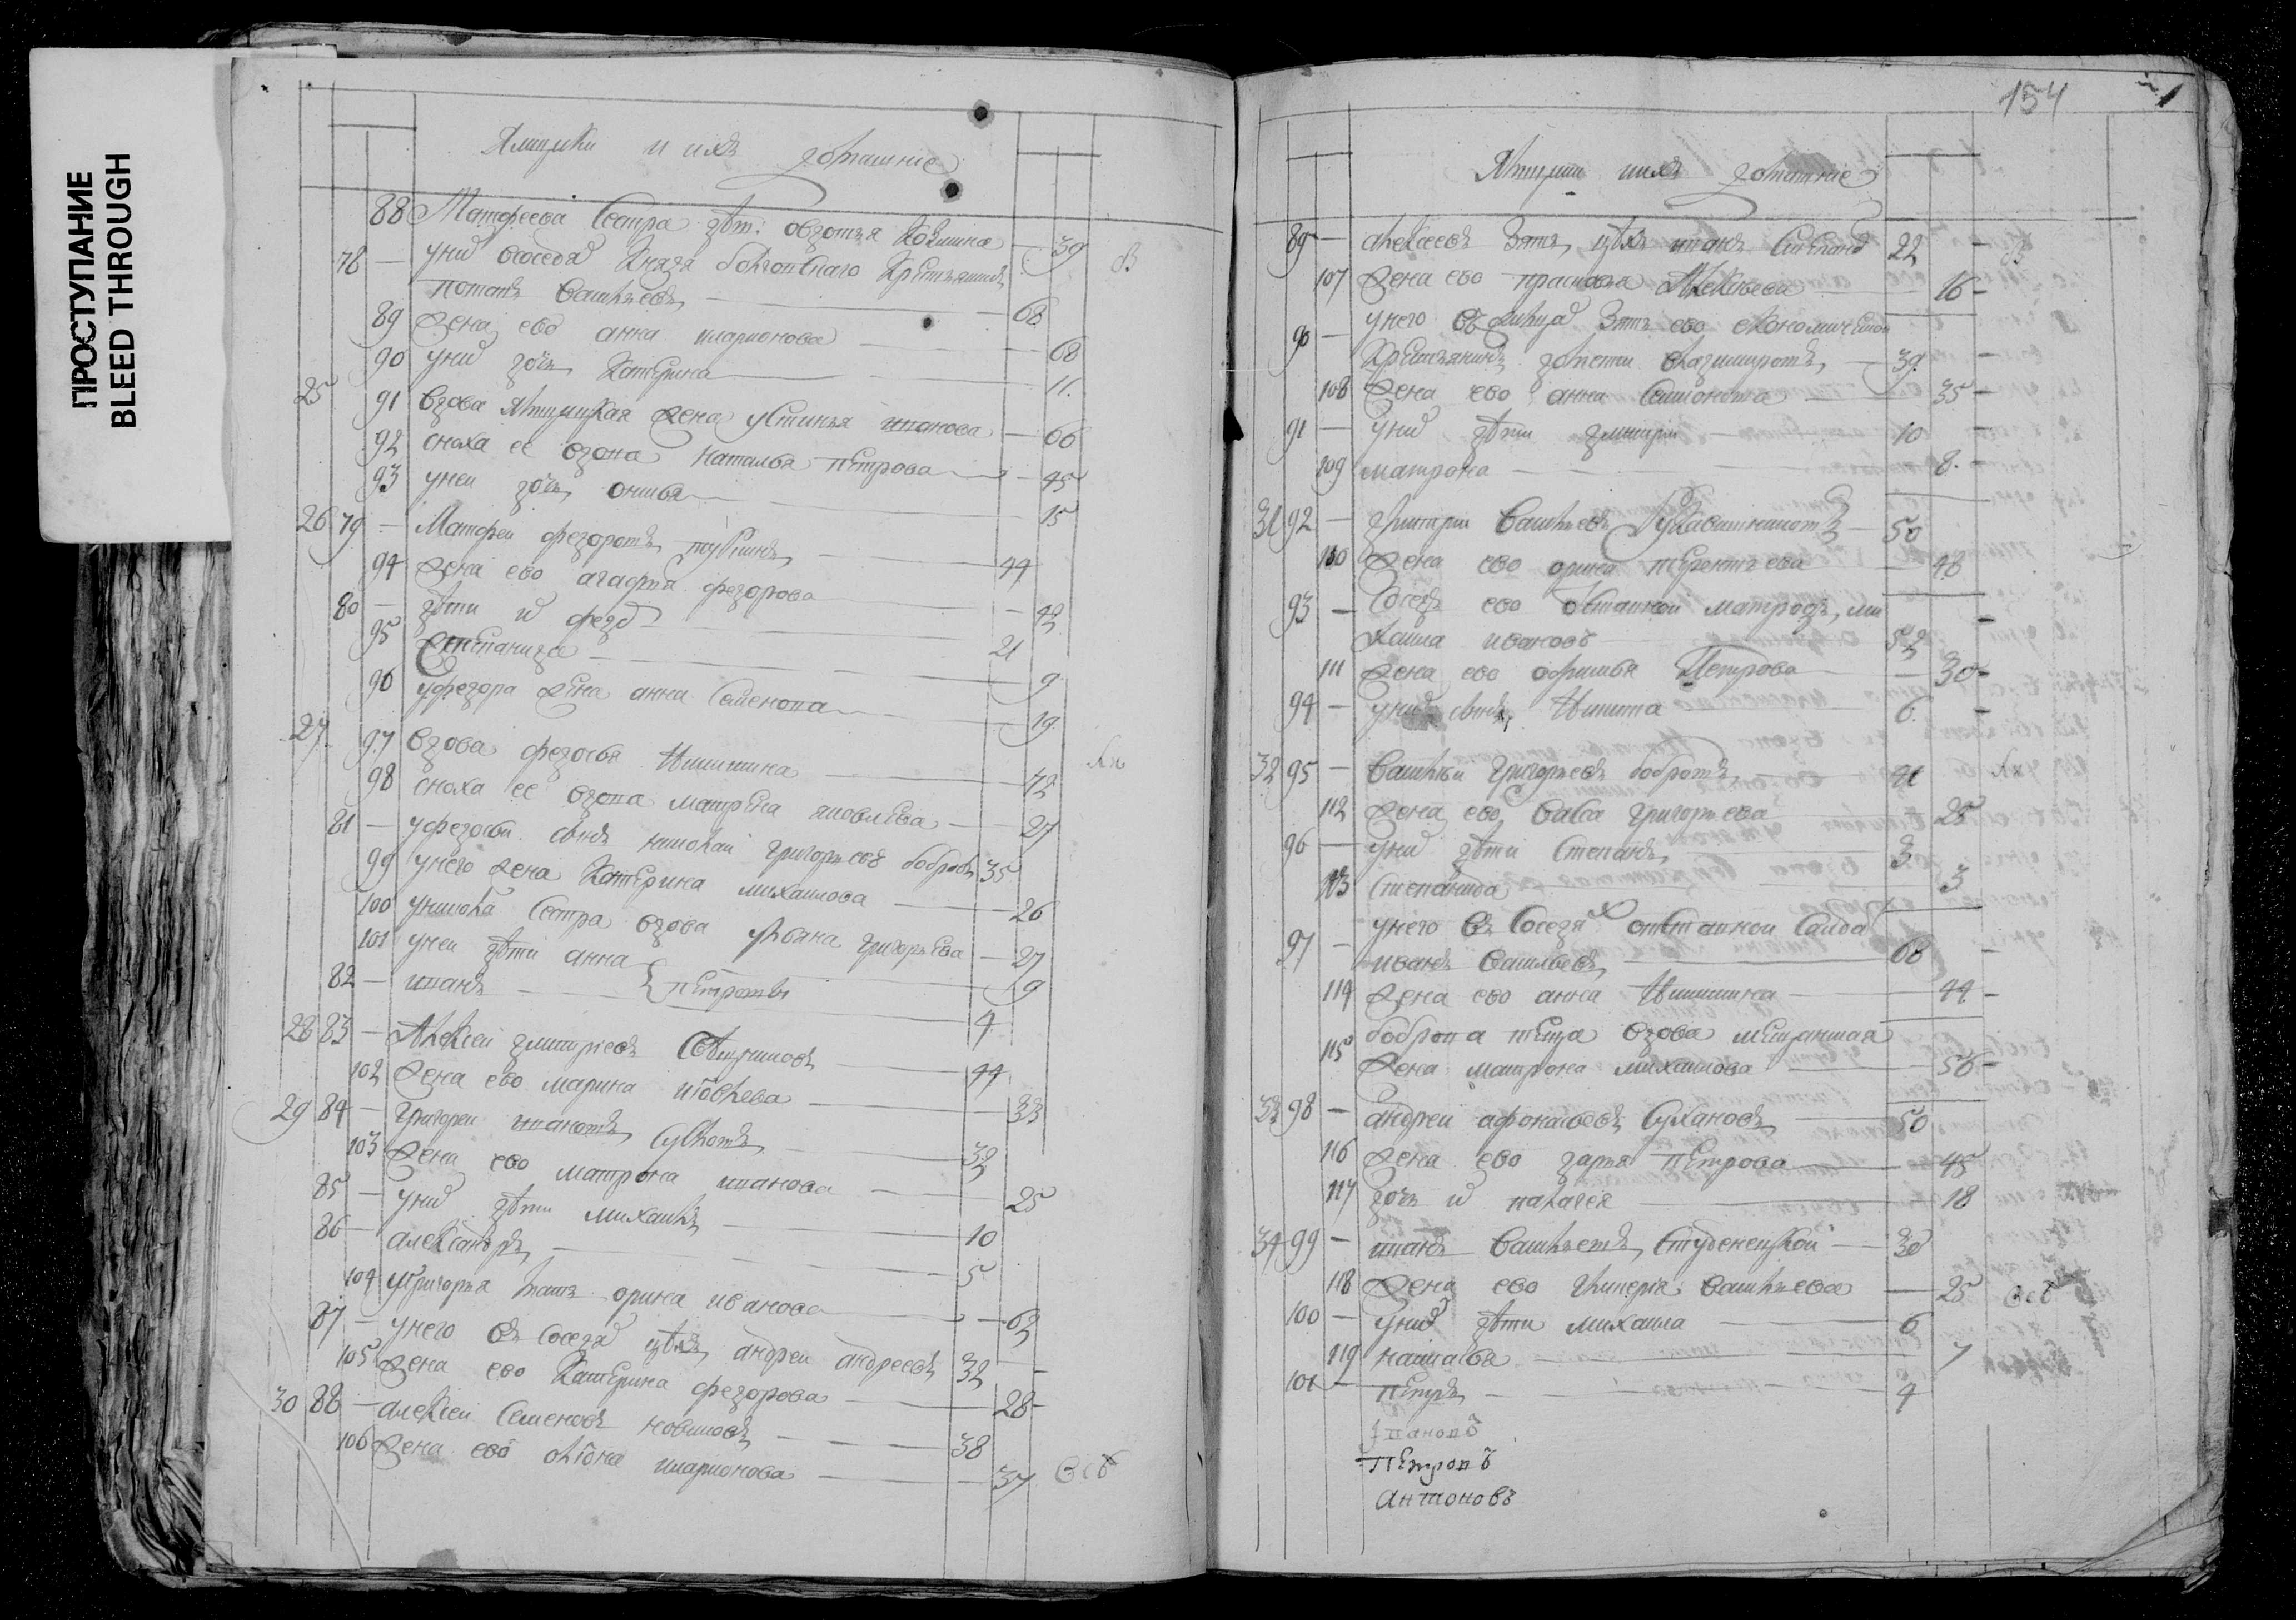 ПРОСТУПАНИЕ
BLEED THROUGH
Ямщики и ихъ домашние
88 Матфеева сестра девка авдотья козмина — 39
78 — у них в соседях князя волконскаго крестьянинъ
потапъ васильевъ — 68
89 жена ево анна иларионова — 68
90 у них дочь катерина — 11
25 91 вдова ямщицкая жена устинья иванова — 66
92 сноха ее вдова наталья петрова — 45
93 у неи дочь — 15
26 79 — Матфеи федоровъ — 44
94 жена ево агафья федорова — 42
80 — дети их федоръ — 21
95 степанида — 9
96 у федора жена анна семенова — 19
27 97 вдова федосья никитина — 72
98 сноха ее вдова матрена яковлева — 27
81 — у федосьи сынъ николаи григорьевъ бобровъ 35
99 у него жена катерина михаилова — 26
100 у николая сестра вдова ульяна григорьева — 27
101 у неи дети анна — 9
82 — иванъ — } петровы 4
28 83 — Алексеи дмитриевъ — 44
102 жена ево марина — 33
29 84 — григореи ивановъ — 32
103 жена ево матрона иванова — 25
85 — у них дети михаила — 10
86 — александръ — 5
104 у григорья мать орина иванова — 62
87 — у него в соседях цеховъ андреи андреевъ 32 —
105 жена ево катерина федорова — 28 —
30 88 — алексеи семеновъ новиковъ — 38
106 жена ево алена иларионова — 37
154
Ямщики и ихъ домашние
89 — алексеевъ зять иванъ 22 —
107 жена ево прасковья Алексеева — 16 —
у него в жилцах зять ево економическои
90 — крестьянинъ дементеи владимировъ — 39 —
108 жена ево анна семионова — 35 —
91 — у них дети дмитреи — 10 —
109 матрона — 8 —
31 92 — григореи васильевъ рукавишниковъ — 50
110 жена ево орина терентьева — 48
93 — сосед ево отставнои матрозъ ми
хаила ивановъ 52 —
111 жена ево офимья Петрова — 30 —
94 — у них сынъ Никита — 6 —
32 95 — василеи григорьевъ бобровъ — 41
112 жена ево васса григорьева 25
96 — у них дети степанъ — 3
113 степанида — 3
у него в соседях отставнои салдат
97 — иванъ васильевъ — 68 —
114 жена ево анна Никитина — 44 —
боброва теща вдова мещанская
115 жена матрона михаилова — 56 —
33 98 — андреи афонасьевъ сухановъ — 50
116 жена ево дарья петрова — 45
117 дочь их палагея — 18
34 99 — иванъ васильевъ студенецкои — 30
118 жена ево гликерия васильева — 25
100 — у них дети михаила — 6
119 наталья — 7
101 — петръ — 4
Ивановъ
Петровъ
Антоновъ